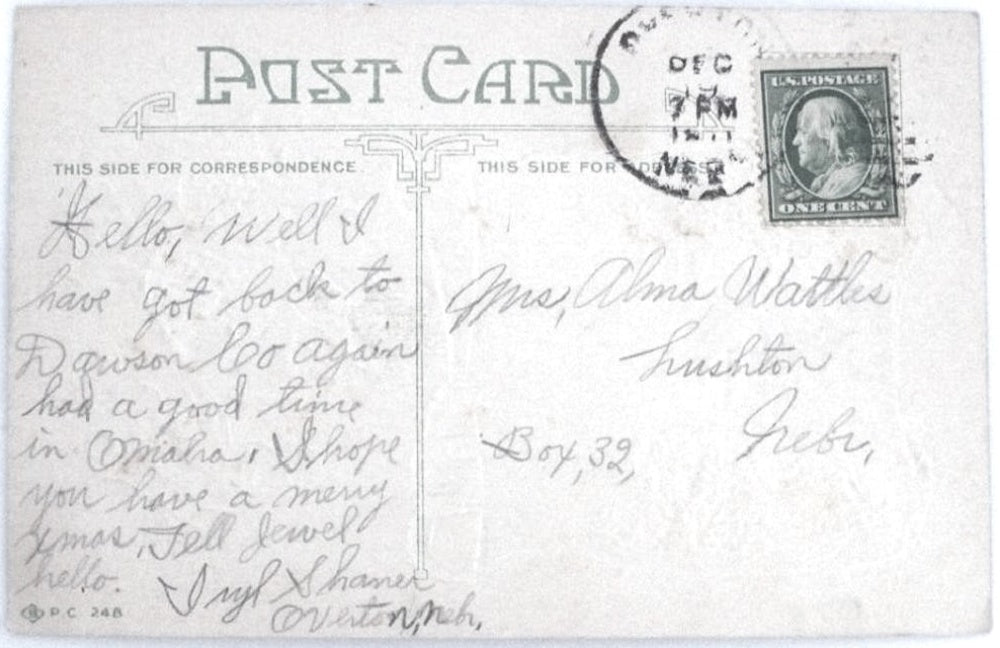 POST CARD
THIS SIDE FOR CORRESPONDENCE
THIS SIDE FOR ADDRESS
DEC
7 PM
NEBR
U.S. POSTAGE
ONE CENT
Hello, Well I
have got back to
Dawson Co again
had a good time
in Omaha. I hope
you have a merry
xmas, Tell Jewel
hello.
Shaner
Overton, Nebr,
P.C 24B
Mrs, Alma Wattles
Lushton
Nebr,
Box, 32,